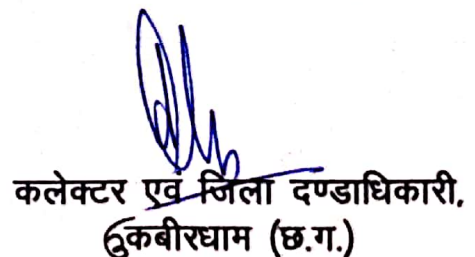 कलेक्टर एवं जिला दण्डाधिकारी,
कबीरधाम (छ.ग.)